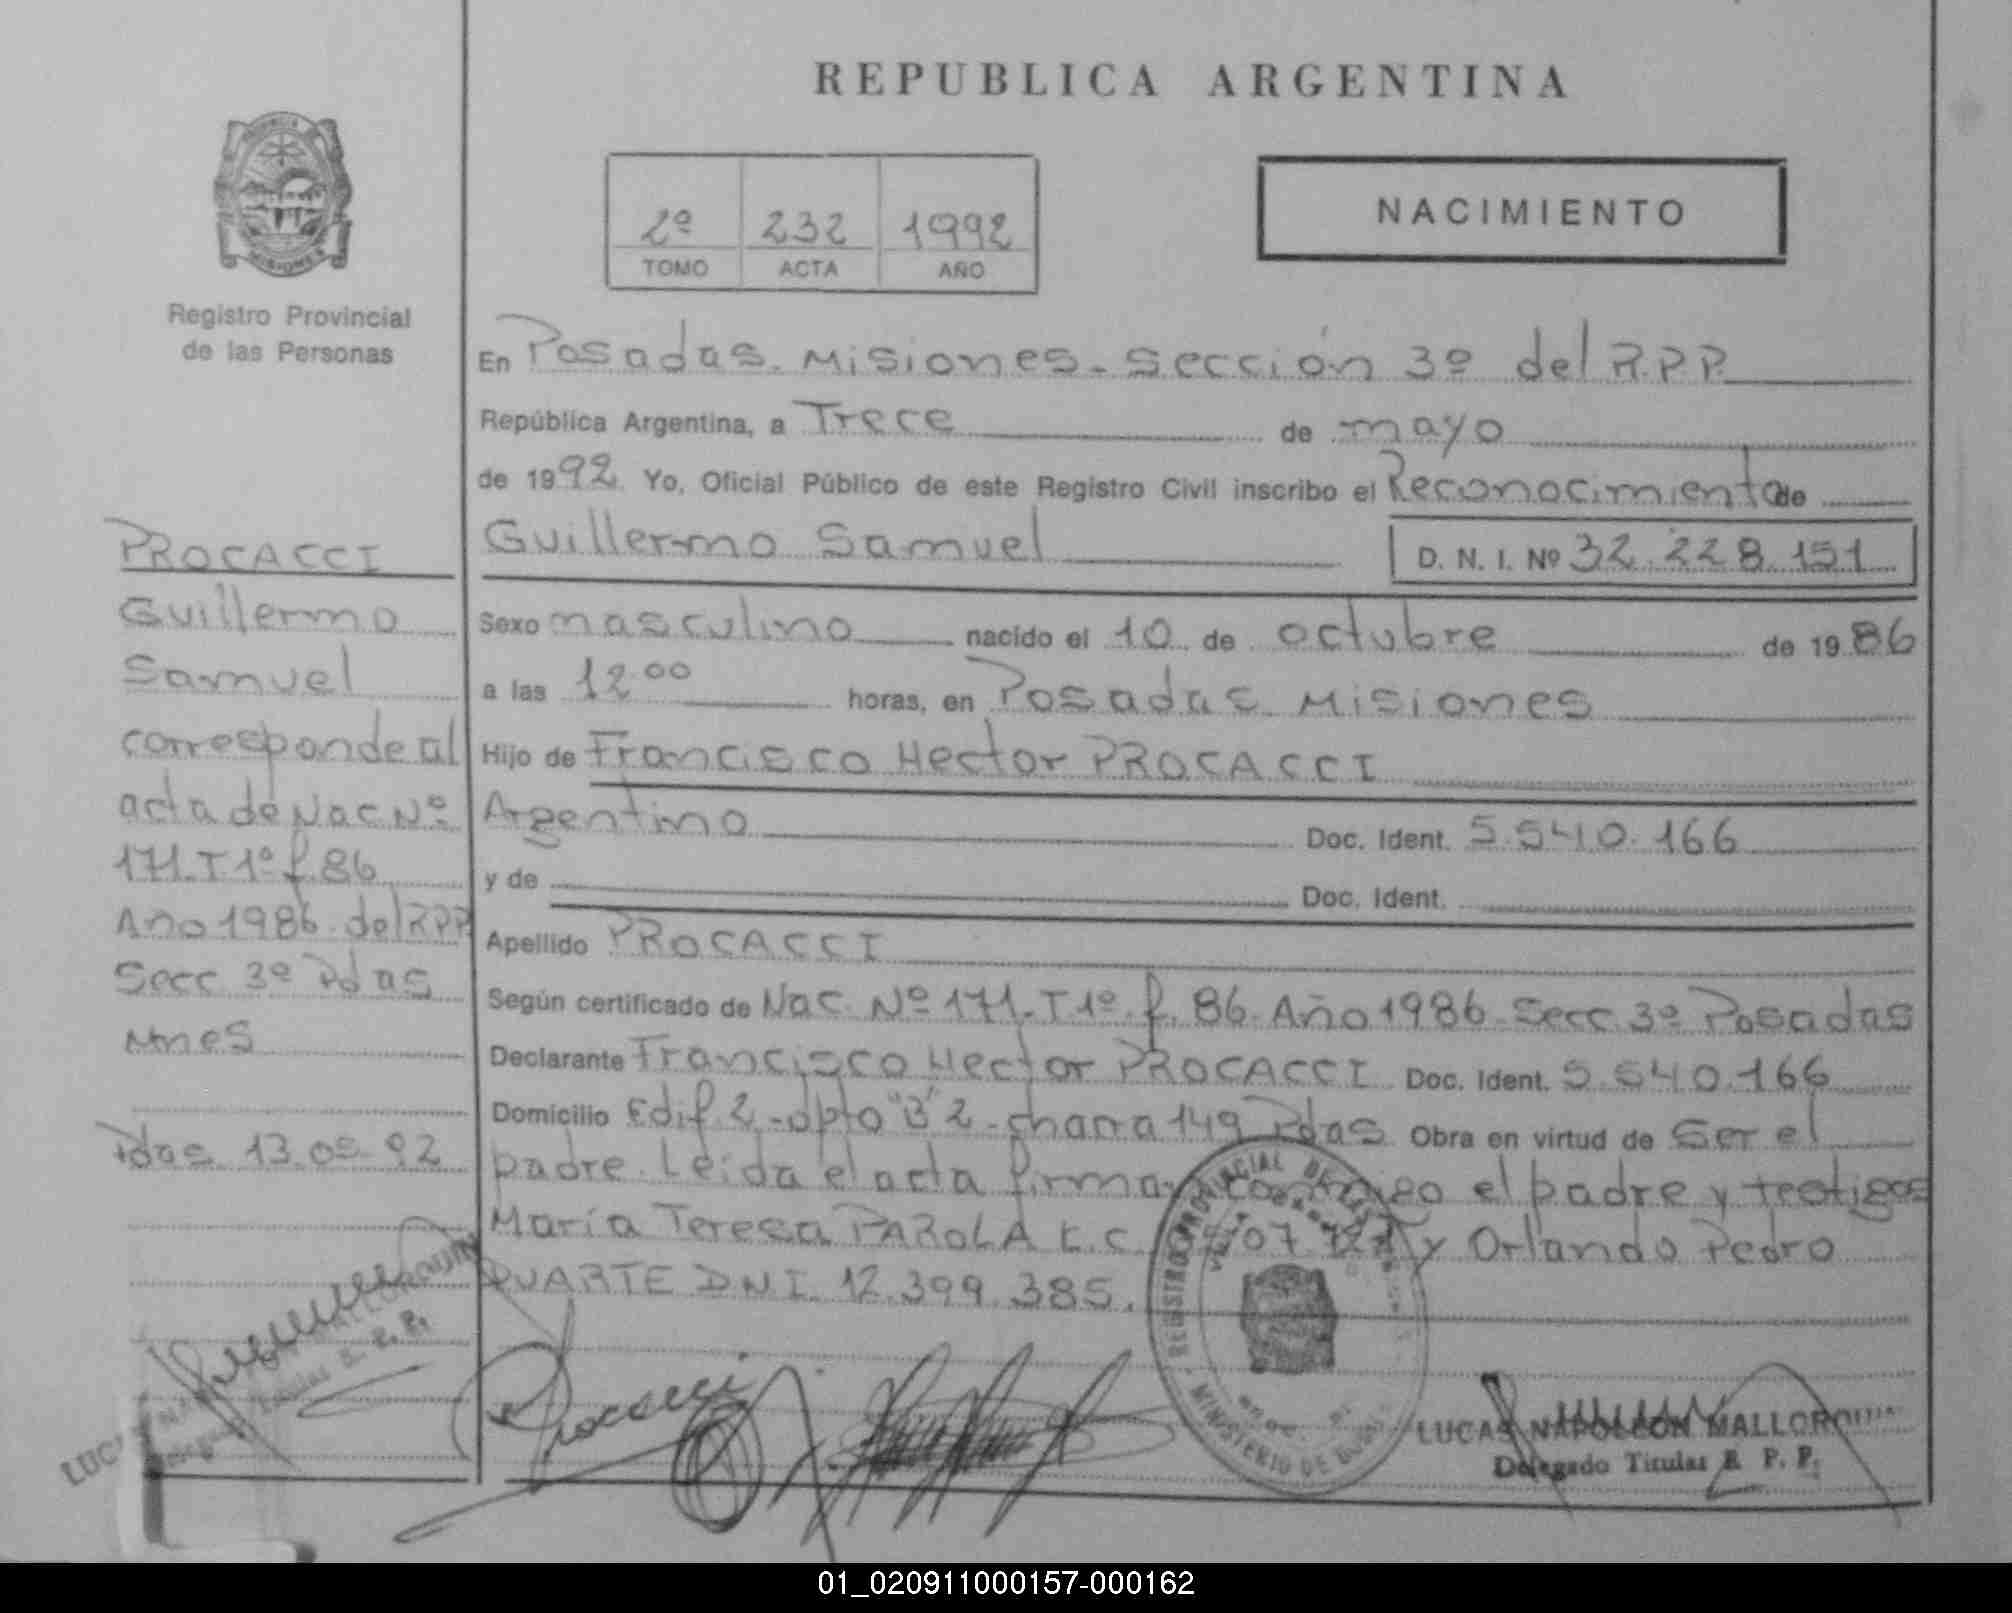 REPUBLICA ARGENTINA
2º 232 1992
TOMO ACTA AÑO
NACIMIENTO
PROVINCIA
MISIONES
Registro Provincial
de las Personas
PROCACCI
Guillermo
Samuel
corresponde al
acta de Nac Nº
171.T 1º f. 86
Año 1986 del RPP
Secc 3º Pdas
Mnes
Pdas. 13.05.92
En Posadas. Misiones. Sección 3º del R.P.P.
República Argentina, a Trece de mayo
de 1992 Yo, Oficial Público de este Registro Civil inscribo el Reconocimiento de
Guillermo Samuel D. N. I. Nº 32.228.151
Sexo masculino nacido el 10 de octubre de 1986
a las 12.00 horas, en Posadas. Misiones
Hijo de Francisco Hector PROCACCI
Argentino Doc. Ident. 5.540.166
y de Doc. Ident.
Apellido PROCACCI
Según certificado de Nac. Nº 171. T 1º. f. 86. Año 1986. Secc 3º Posadas
Declarante Francisco Hector PROCACCI Doc. Ident. 5.540.166
Domicilio Edif. 2 - dpto "B" 2 - chacra 149 Pdas Obra en virtud de Ser el
padre. Leida el acta firman conmigo el padre y testigos
María Teresa PAROLA L.C. y Orlando Pedro
DUARTE D.N.I. 12.399.385.
Procacci
REGISTRO PROVINCIAL DE LAS
MINISTERIO DE
LUCAS NAPOLEON MALLORQUIN
Delegado Titular R. P. P.
01_020911000157-000162